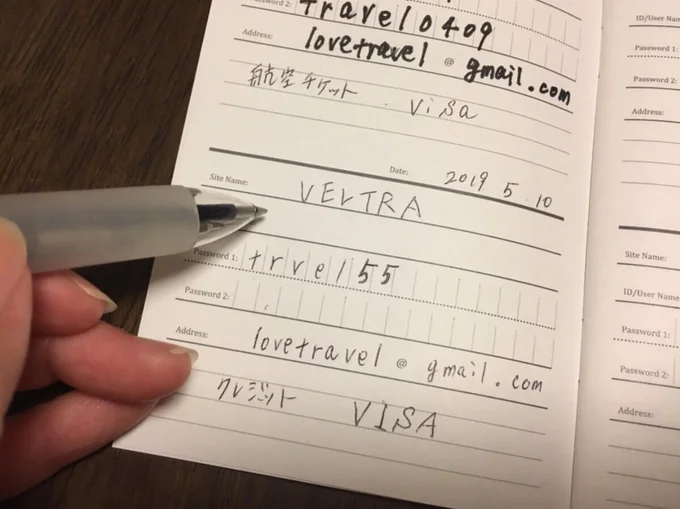 Password 2: travel0409
Address: lovetravel @ gmail.com
航空チケット Visa
Date: 2019 5 10
Site Name: VELTRA
Password 1: trvel55
Password 2:
Address: lovetravel @ gmail.com
クレジット VISA
ID/User Name
Password 1:
Password 2:
Address:
Site Name:
ID/User Name
Password 1:
Password 2:
Address: